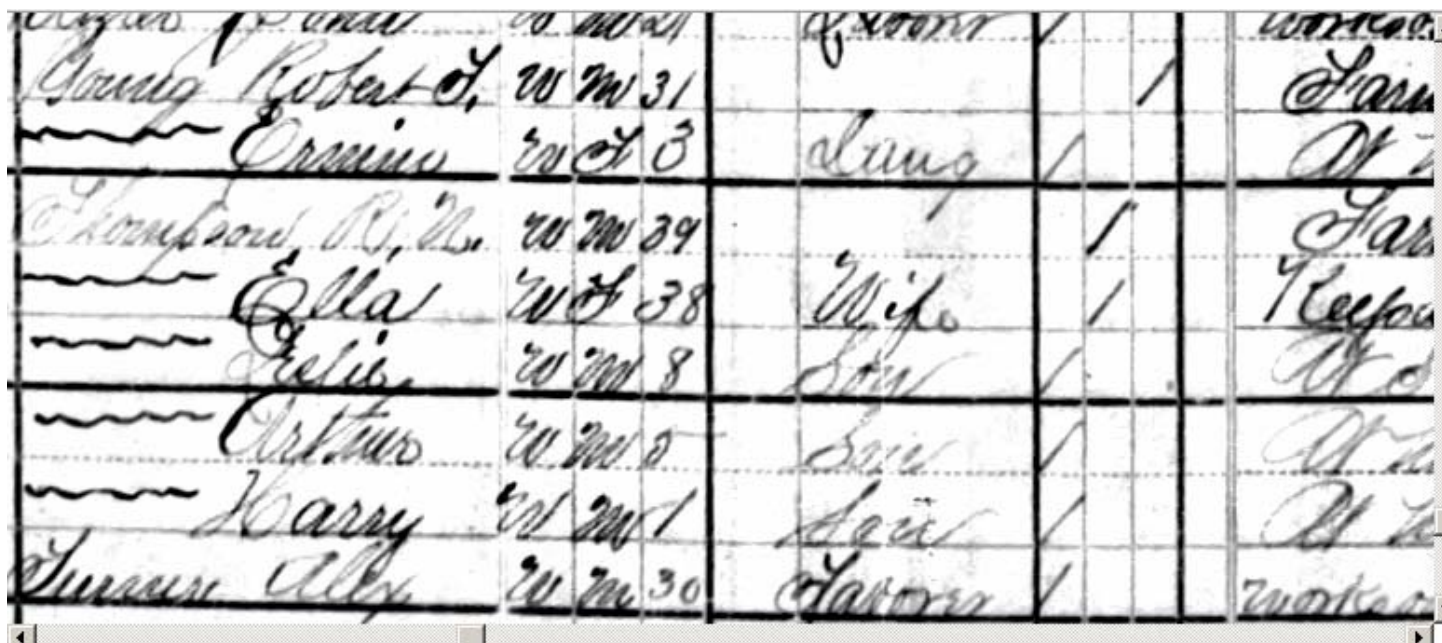 W M 21 Laborer / works o
Young Robert F. W M 31 / Farm
Ermin W F 3 Daug / At
Thompson, R. N. W M 39 / Far
Ella W F 38 Wife / Keep
W M 8 Son / At S
Arthur W M 5 Son / At
Harry W M 1 Son / At
Alex W M 30 Laborer / works o